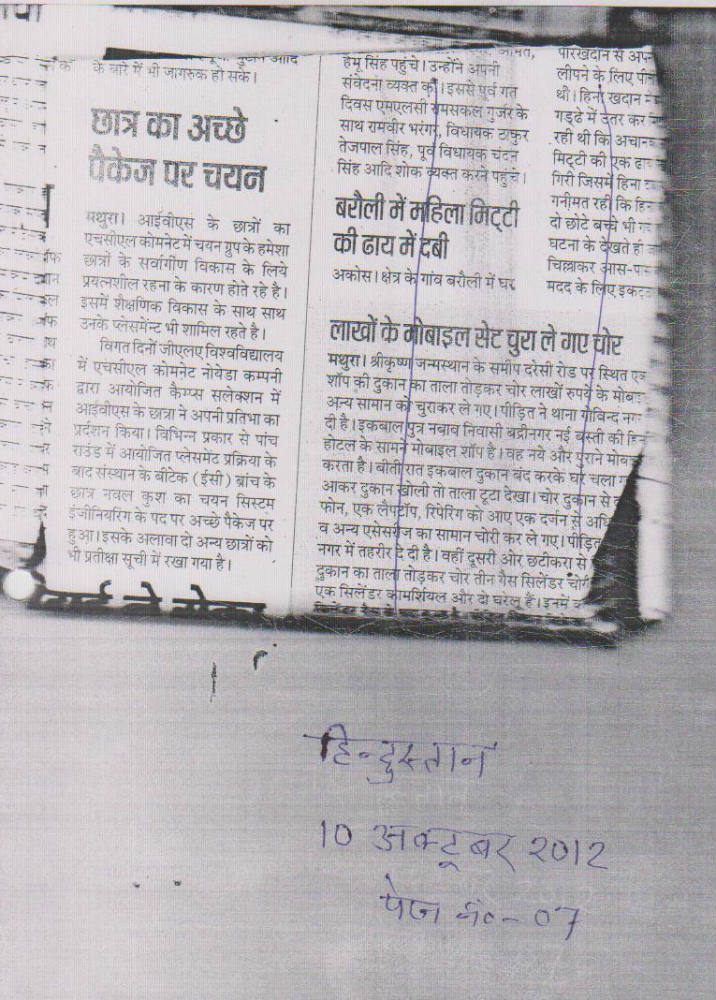 के बारे में भी जागरुक हो सके।
छात्र का अच्छे
पैकेज पर चयन
मथुरा। आईवीएस के छात्रों का
एचसीएल कोमनेट में चयन ग्रुप के हमेशा
छात्रों के सर्वागीण विकास के लिये
प्रयत्नशील रहना के कारण होते रहे है।
इसमें शैक्षणिक विकास के साथ साथ
उनके प्लेसमेन्ट भी शामिल रहते है।
विगत दिनों जीएलए विश्वविद्यालय
में एचसीएल कोमनेट नोयेडा कम्पनी
द्वारा आयोजित कैम्पस सलेक्शन में
आईवीएस के छात्रा ने अपनी प्रतिभा का
प्रर्दशन किया। विभिन्न प्रकार से पांच
राउंड में आयोजित प्लेसमेंट प्रक्रिया के
बाद संस्थान के बीटेक (ईसी) ब्रांच के
छात्र नवल कुश का चयन सिस्टम
इंजीनियरिंग के पद पर अच्छे पैकेज पर
हुआ। इसके अलावा दो अन्य छात्रों को
भी प्रतीक्षा सूची में रखा गया है।
हेमू सिंह पहुंचे। उन्होंने अपनी
संवेदना व्यक्त की। इससे पूर्व गत
दिवस एमएलसी रामसकल गुर्जर के
साथ रामवीर भरंगर, विधायक ठाकुर
तेजपाल सिंह, पूर्व विधायक चंदन
सिंह आदि शोक व्यक्त करने पहुंचे।
बरौली में महिला मिट्टी
की ढाय में दबी
अकोस। क्षेत्र के गांव बरौली में घर
पारखदान से अपने
लीपने के लिए पी
थी। हिना खदान
गड्ढे में उतर कर
रही थी कि अचानक
मिट्टी की एक ढाय
गिरी जिसमें हिना
गनीमत रही कि हि
दो छोटे बच्चे भी
घटना के देखते ही
चिल्लाकर आस-पा
मदद के लिए इकट्
लाखों के मोबाइल सेट चुरा ले गए चोर
मथुरा। श्रीकृष्ण जन्मस्थान के समीप दरेसी रोड पर स्थित एक
शॉप की दुकान का ताला तोड़कर चोर लाखों रुपये के मोबा
अन्य सामान को चुराकर ले गए। पीड़ित ने थाना गोविन्द नग
दी है। इकबाल पुत्र नबाव निवासी बद्रीनगर नई बस्ती की हि
होटल के सामने मोबाइल शॉप है। वह नये और पुराने मोब
करता है। बीती रात इकबाल दुकान बंद करके घर चला ग
आकर दुकान खोली तो ताला टूटा देखा। चोर दुकान से
फोन, एक लैपटॉप, रिपेरिंग को आए एक दर्जन से अधि
व अन्य एसेसरीज का सामान चोरी कर ले गए। पीड़ित
नगर में तहरीर दे दी है। वहीं दूसरी ओर छटीकरा से
दुकान का ताला तोड़कर चोर तीन गैस सिलेंडर चोरी
एक सिलेंडर कामर्शियल और दो घरेलू हैं। इनमें
हिन्दुस्तान
10 अक्टूबर 2012
पेज नं०-07